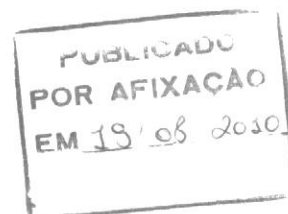 PUBLICADO
POR AFIXAÇÃO
EM 19 08 2010